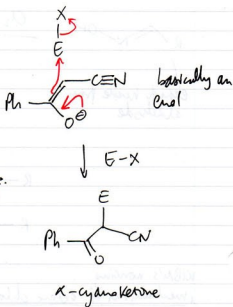 X
E
C≡N
basically an
enol
Ph
O⊖
E-X
E
Ph
CN
O
α-cyanoketone